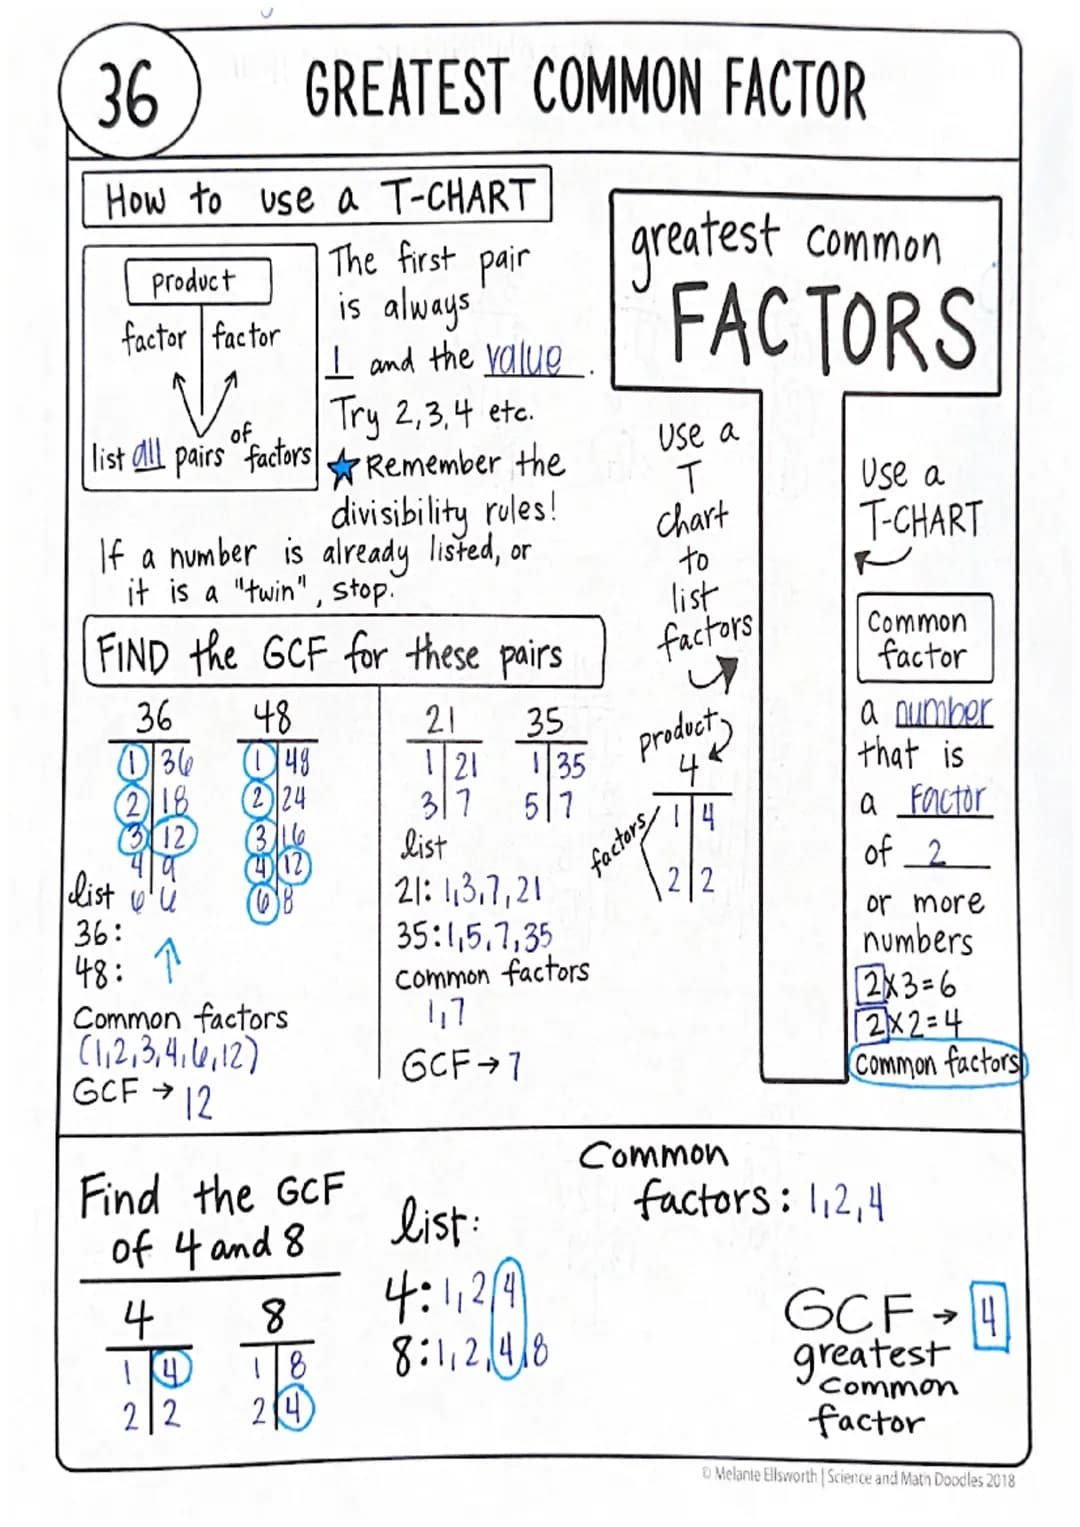 36
GREATEST COMMON FACTOR
How to use a T-CHART
product
factor factor
list all pairs of factors
The first pair
is always
1 and the value.
Try 2,3,4 etc.
Remember the
divisibility rules!
If a number is already listed, or
it is a "twin", stop.
FIND the GCF for these pairs
36
1 36
2 18
3 12
4 9
6 6
48
1 48
2 24
3 16
4 12
6 8
list
36:
48:
Common factors
(1,2,3,4,6,12)
GCF → 12
21
1 21
3 7
35
1 35
5 7
list
21: 1,3,7,21
35: 1,5,7,35
common factors
1,7
GCF → 7
greatest common
FACTORS
use a
T
chart
to
list
factors
product
4
factors
1 4
2 2
Use a
T-CHART
Common
factor
a number
that is
a Factor
of 2
or more
numbers
2x3=6
2x2=4
Common factors
Find the GCF
of 4 and 8
4
1 4
2 2
8
1 8
2 4
list:
4: 1,2,4
8: 1,2,4,8
Common
factors: 1,2,4
GCF → 4
greatest
common
factor
© Melanie Ellsworth | Science and Math Doodles 2018